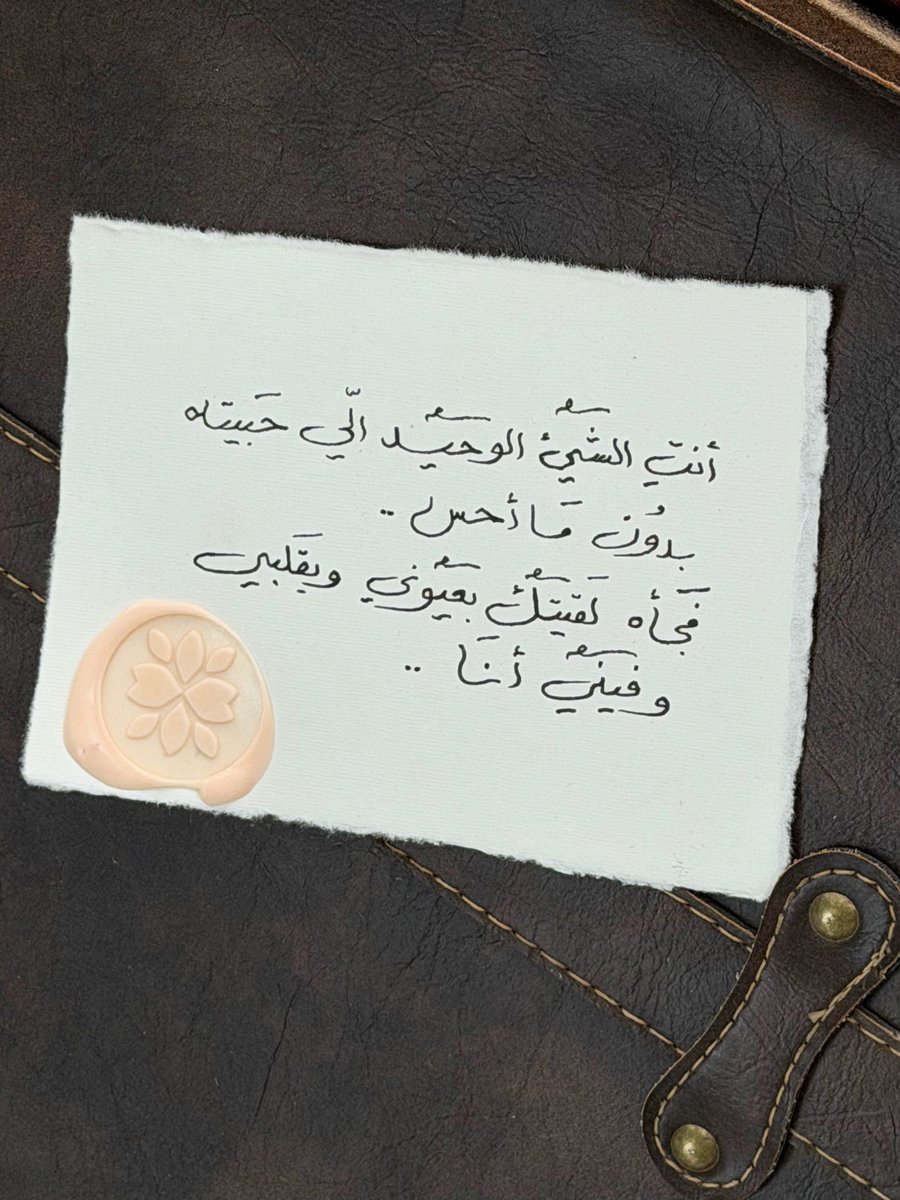 أنتِ الشيُّ الوحيُد الّي حَبيته
بدوُن مَا أحس ..
فَجأه لَقيتكُ بعيوُني وبقَلبي
وفينيُ أنَا ..